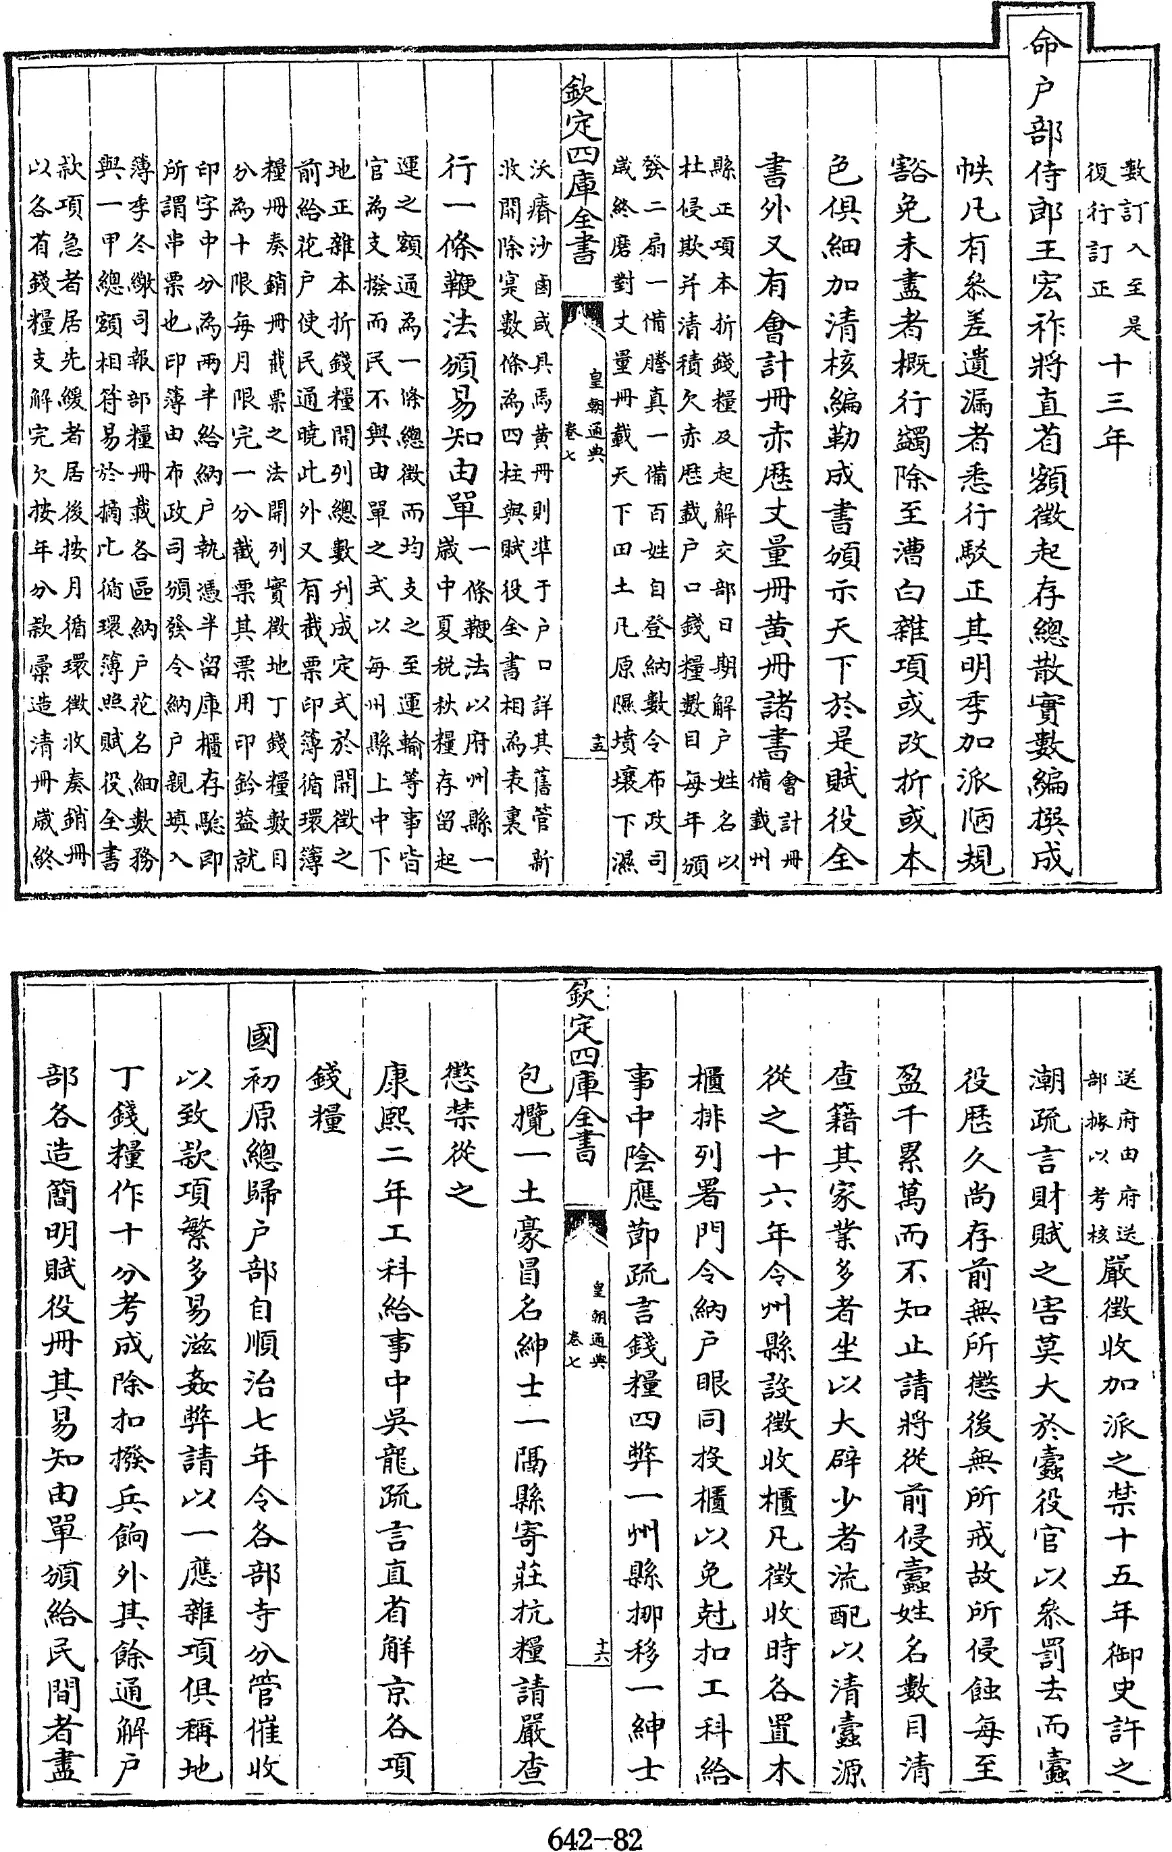 數訂入至是復行訂正十三年
命户部侍郎王宏祚將直省額徵起存總散實數編撰成
帙凡有叅差遺漏者悉行駁正其明季加派陋規
豁免未盡者概行蠲除至漕白雜項或改折或本
色俱細加清核編勒成書頒示天下於是賦役全
書外又有會計冊赤歴丈量冊黄冊諸書會計冊備載州
縣正項本折錢糧及起解交部日期解户姓名以
杜侵欺并清積欠赤歴載户口錢糧數目每年頒
發二扇一備謄真一備百姓自登納數令布政司
歲終磨對丈量冊載天下田土凡原隰墳壤下濕
欽定四庫全書
皇朝通典
卷七
十五
沃瘠沙鹵咸具焉黄冊則準于户口詳其舊管新
收開除寔數條為四柱與賦役全書相為表裏
行一條鞭法頒易知由單一條鞭法以府州縣一歲中夏税秋糧存留起
運之額通為一條總徵而均支之至運輸等事皆
官為支撥而民不與由單之式以每州縣上中下
地正雜本折錢糧開列總數刋成定式於開徵之
前給花户使民通曉此外又有截票印簿循環簿
糧冊奏銷冊截票之法開列實徵地丁錢糧數目
分為十限每月限完一分截票其票用印鈐蓋就
印字中分為兩半給納户執憑半留庫櫃存騐即
所謂串票也印簿由布政司頒發令納户親填入
簿季冬繳司報部糧冊載各區納户花名細數務
與一甲總額相符易於摘比循環簿照賦役全書
款項急者居先緩者居後按月循環徵收奏銷冊
以各省錢糧支解完欠按年分款彚造清冊歲終
送府由府送部據以考核嚴徵收加派之禁十五年御史許之
潮疏言財賦之害莫大於蠹役官以叅罰去而蠹
役歴久尚存前無所懲後無所戒故所侵蝕每至
盈千累萬而不知止請將從前侵蠹姓名數目清
查籍其家業多者坐以大辟少者流配以清蠹源
從之十六年令州縣設徵收櫃凡徵收時各置木
櫃排列署門令納户眼同投櫃以免尅扣工科給
事中陰應節疏言錢糧四弊一州縣挪移一紳士
欽定四庫全書
皇朝通典
卷七
十六
包攬一土豪冒名紳士一隔縣寄莊抗糧請嚴查
懲禁從之
康熙二年工科給事中吳龍疏言直省解京各項
錢糧
國初原總歸户部自順治七年令各部寺分管催收
以致款項繁多易滋姦弊請以一應雜項俱稱地
丁錢糧作十分考成除扣撥兵餉外其餘通解户
部各造簡明賦役冊其易知由單頒給民間者盡
642-82